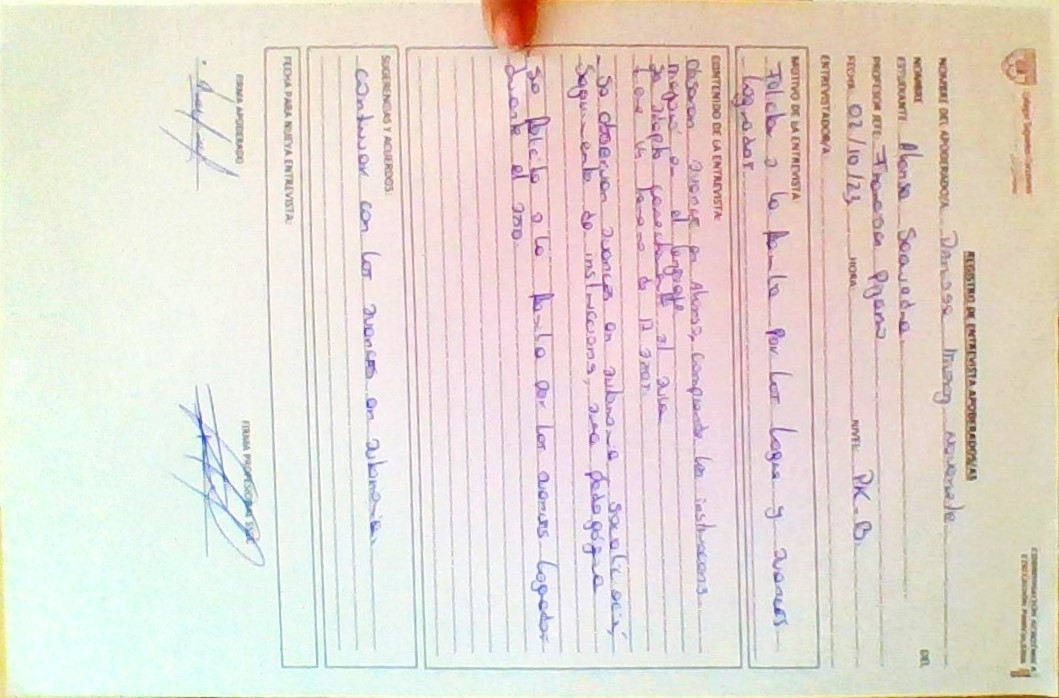 COORDINACIÓN ACADÉMICA
REGISTRO DE ENTREVISTA APODERADOS/AS
NOMBRE DEL APODERADO/A Danissa Navarrete
NOMBRE DEL
ESTUDIANTE Alonso Saavedra
PROFESOR JEFE: Francisca Pizarro
FECHA: 02/10/23 HORA: NIVEL: PK-B.
ENTREVISTADOR/A
MOTIVO DE LA ENTREVISTA:
Felicitar a la familia por los logros y avances
logrados.
CONTENIDO DE LA ENTREVISTA:
Observan avances en Alonso, comprende las instrucciones
mejora en el lenguaje
se adapta al aula
tiene un hermano de 12 años.
- Se observan avances en autonomía, socialización,
seguimiento de instrucciones, area pedagógica
- Se felicita a la familia por los avances logrados
durante el año
SUGERENCIAS Y ACUERDOS:
Continuar con los avances en autonomía.
FECHA PARA NUEVA ENTREVISTA:
FIRMA APODERADO